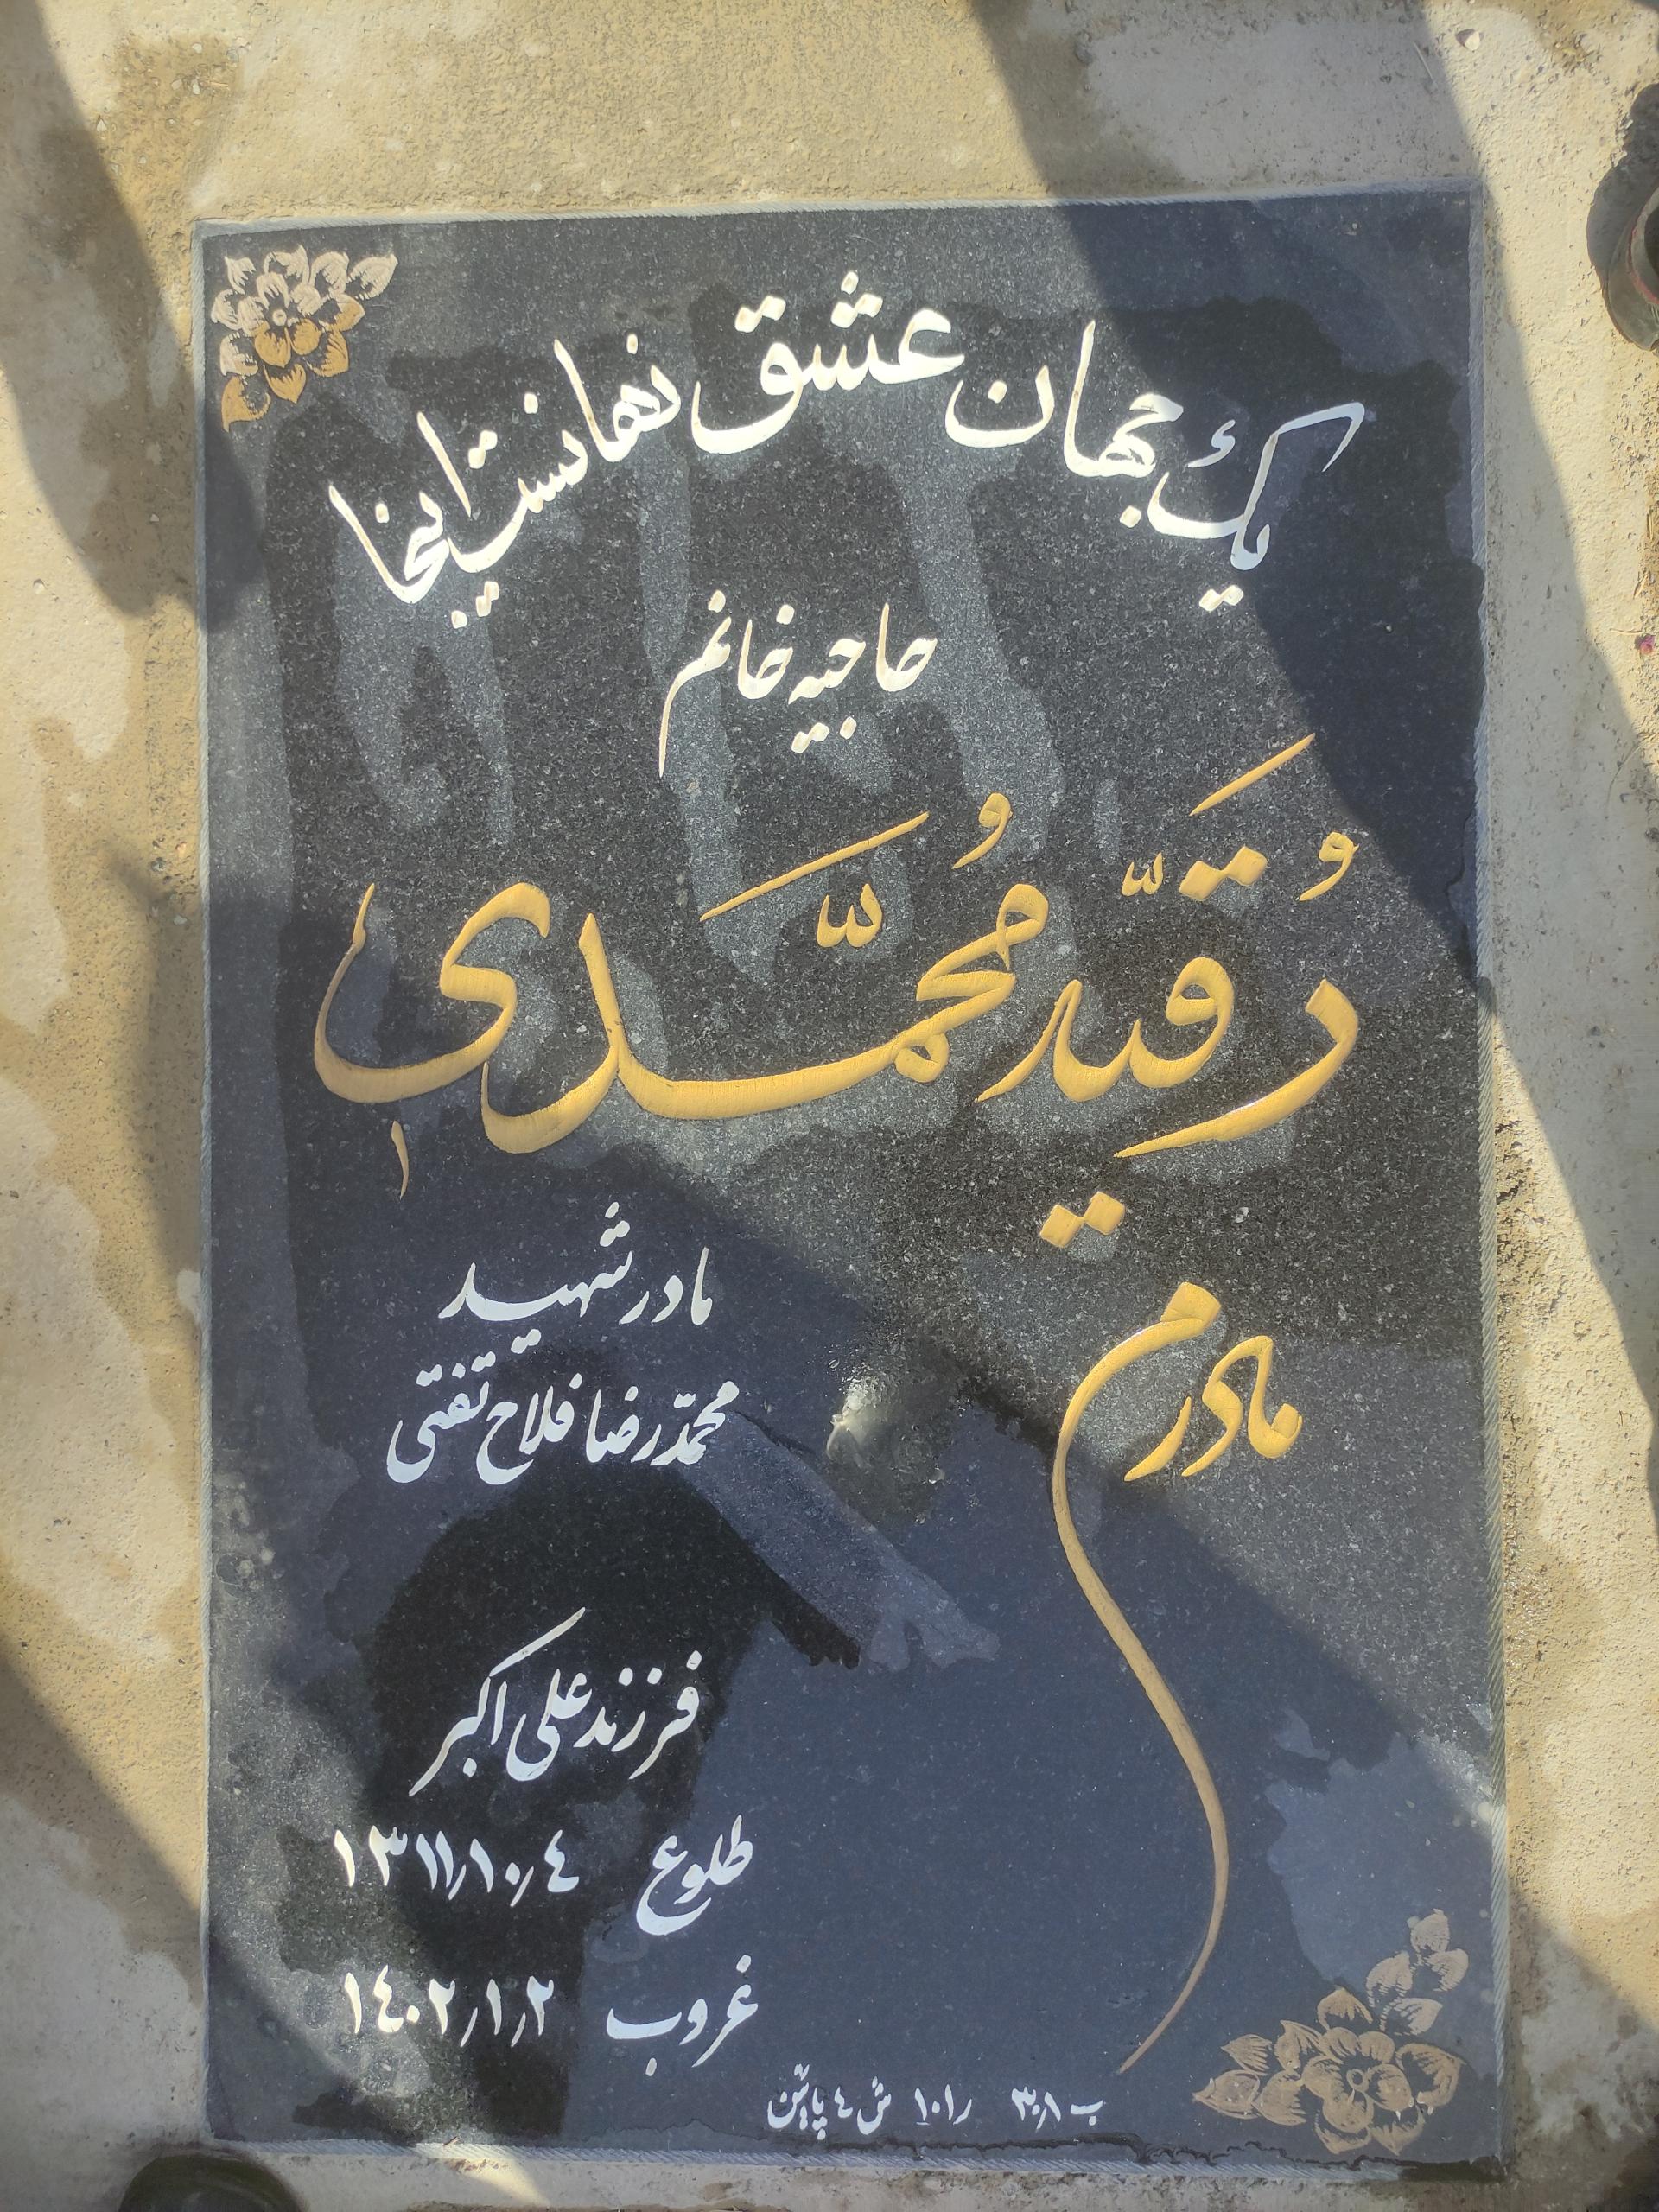 یک جهان عشق نهانست اینجا
حاجیه خانم
رُقَیّه مُحَمَّدی
مادرم
مادر شهید
محمّدرضا فلاح تفتی
فرزند علی اکبر
طلوع ۱۳۱۱٫۱۰٫٤
غروب ۱٤۰۲٫۱٫۲
ب ۳۰۸ ر ۱۰۱ ش ٤ پائین